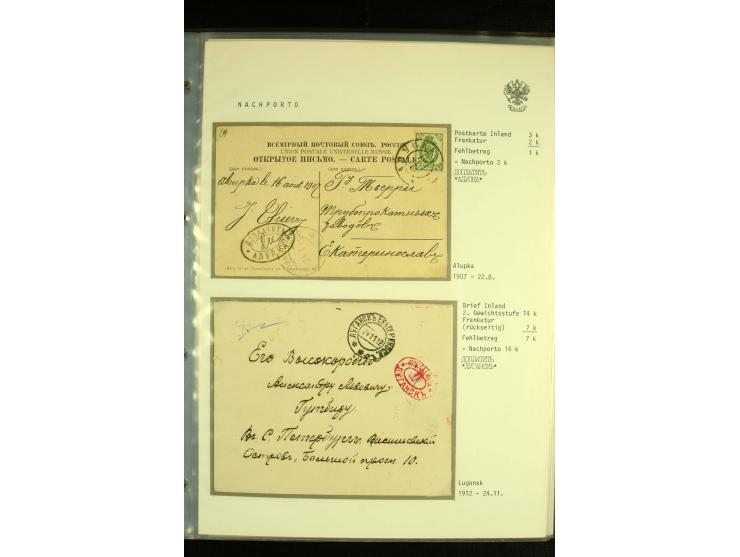 NACHPORTO
Postkarte Inland 3 k
Frankatur 2 k
Fehlbetrag 1 k
= Nachporto 2 k
ДОПЛАТИТЬ
ВСЕМІРНЫЙ ПОЧТОВЫЙ СОЮЗЪ. РОССІЯ
UNION POSTALE UNIVERSELLE RUSSIE.
ОТКРЫТОЕ ПИСЬМО. — CARTE POSTALE
16 août 1907
Г-ну Тьерри
J Thierry
Трубопрокатныхъ
заводовъ
Екатеринославъ
ДОПЛАТИТЬ
Alupka
1907 - 22.8.
Brief Inland
2. Gewichtsstufe 14 k
Frankatur
(rückseitig) 7 k
Fehlbetrag 7 k
= Nachporto 14 k
ДОПЛАТИТЬ
*ЛУГАНСКЪ*
ЛУГАНСКЪ
Его Высокородію
Александру Львовичу
Въ С. Петербургъ, Васильевскій
Островъ, Большой 10.
Lugansk
1912 - 24.11.